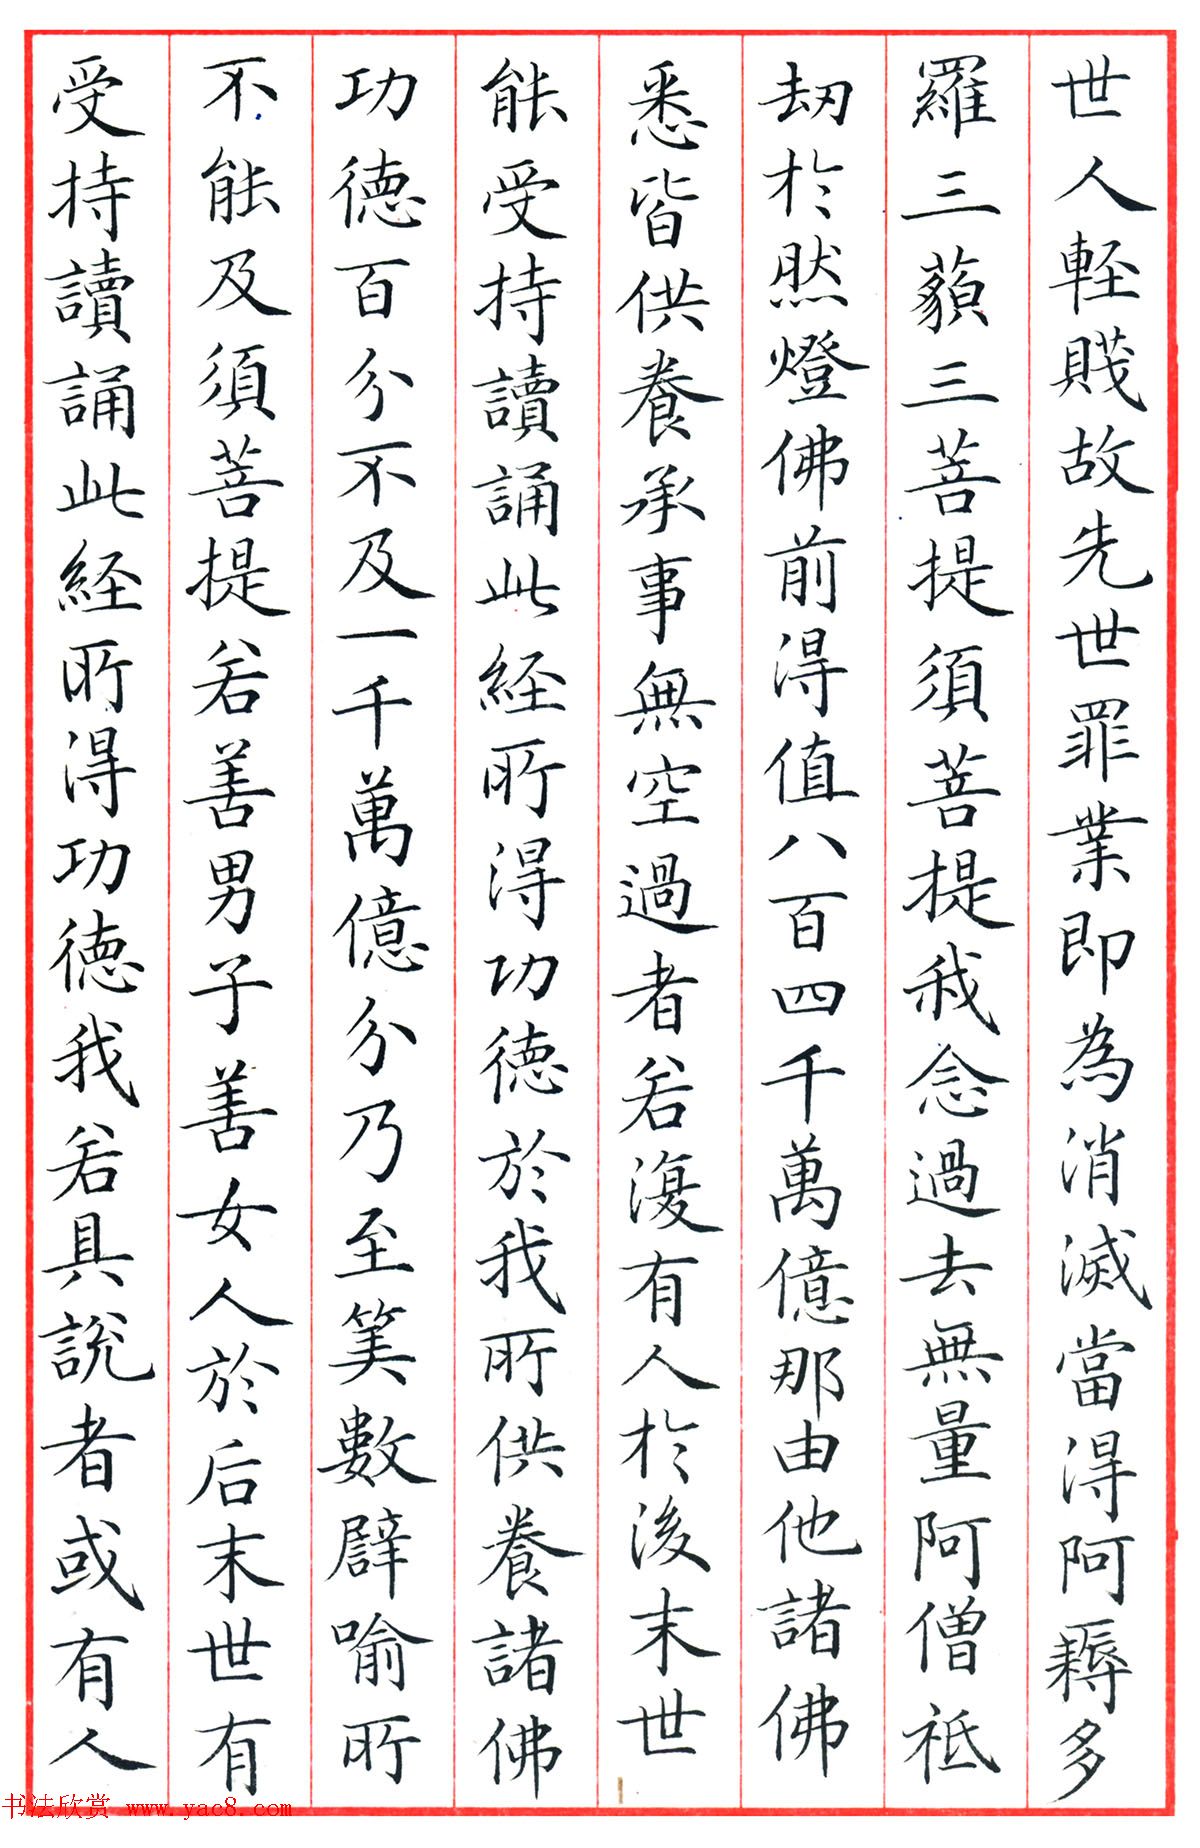 世人輕賤故先世罪業即為消滅當得阿耨多
羅三藐三菩提須菩提我念過去無量阿僧祇
劫於然燈佛前得值八百四千萬億那由他諸佛
悉皆供養承事無空過者若復有人於後末世
能受持讀誦此経所得功德於我所供養諸佛
功德百分不及一千萬億分乃至筭數譬喻所
不能及須菩提若善男子善女人於后末世有
受持讀誦此経所得功德我若具説者或有人
书法欣赏 www.yac8.com